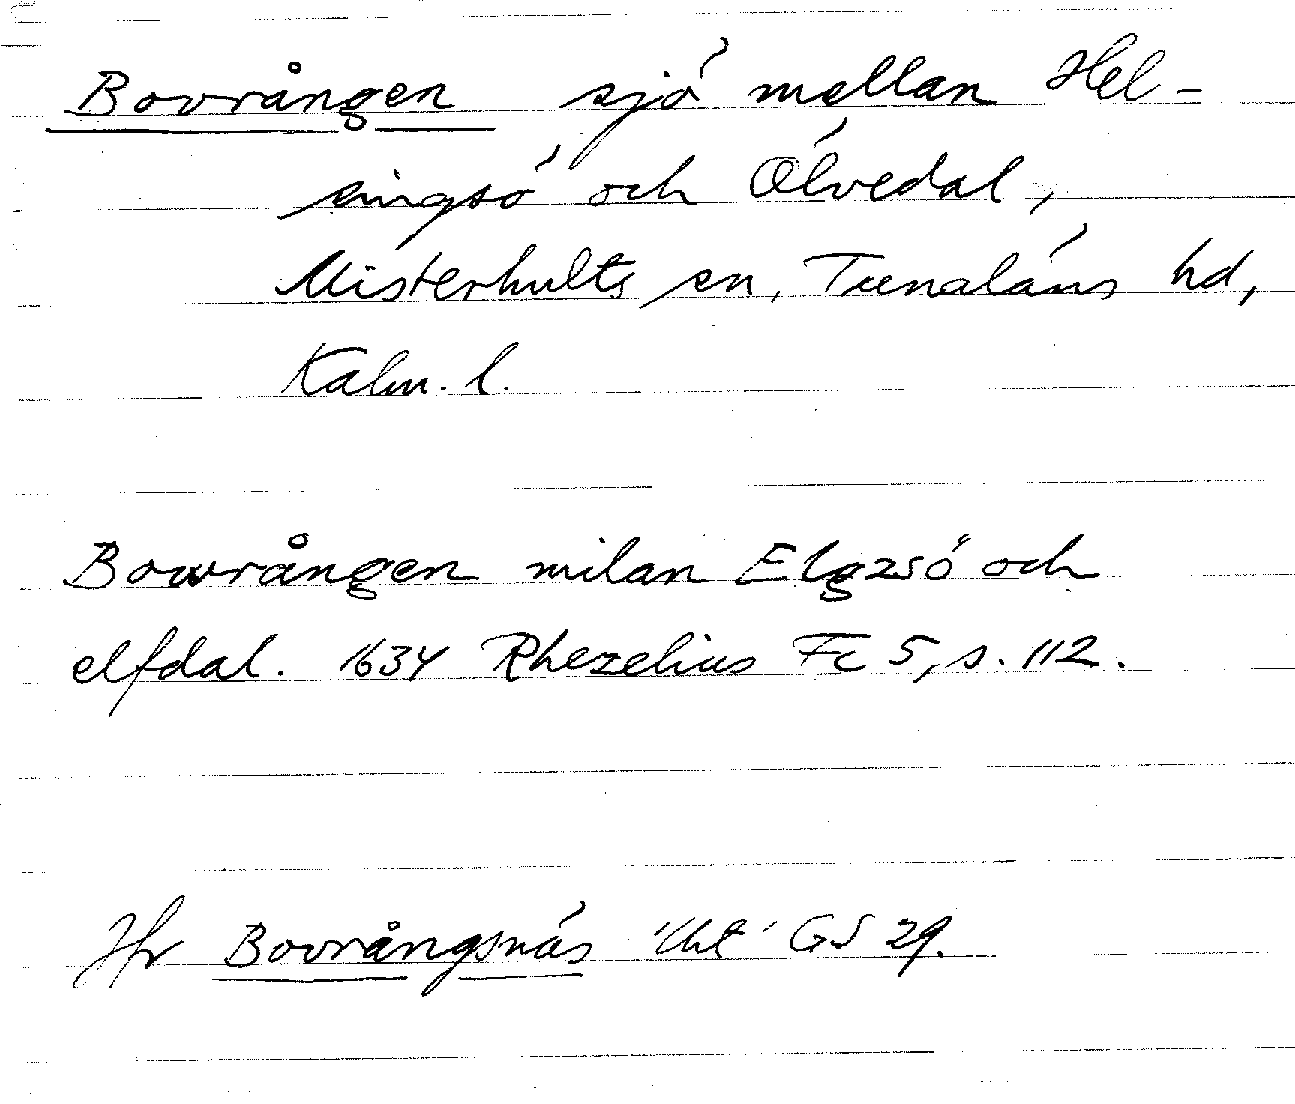 Bovrången sjö mellan Hel-
singsö och Ölvedal,
Misterhults sn, Tunaläns hd,
Kalm. l.
Bowrången milan Elgzsö och
elfdal. 1634 Rhezelius Fc 5, s. 112.
Jfr Bovrångsnäs 'Uht' GS 29.